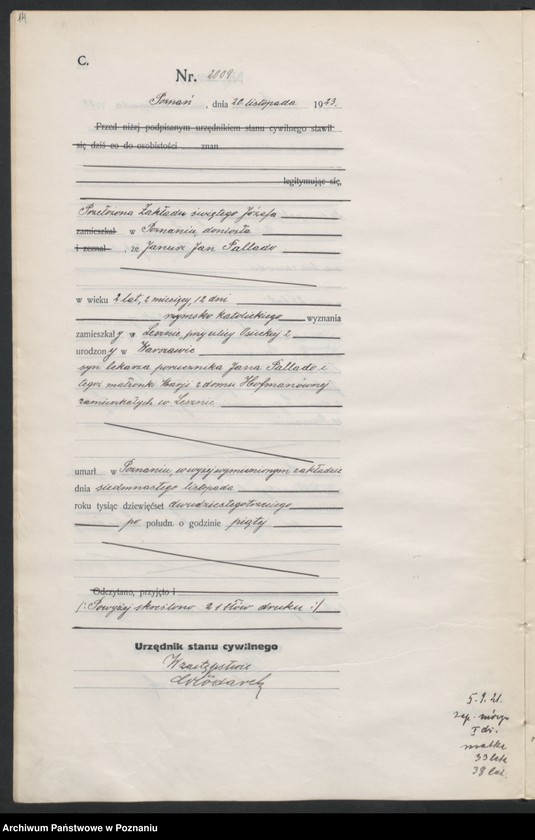 14
C.
Nr. 2009
Poznań, dnia 20 listopada 1923.
Przed niżej podpisanym urzędnikiem stanu cywilnego stawił
się dziś co do osobistości znan
legitymując się,
Przełożona Zakładu świętego Józefa
zamieszkał w Poznaniu doniosła
i zeznał, że Janusz Jan Pallado
w wieku 2 lat, 2 miesięcy, 12 dni
rzymsko katolickiego wyznania
zamieszkały w Lesznie, przy ulicy Osieckiej 2
urodzony w Warszawie
syn lekarza porucznika Jana Pallado i
tegoż małżonki Marji z domu Hofmanównej
zamieszkałych w Lesznie
umarł w Poznaniu, w wyżej wymienionym zakładzie
dnia siedmnastego listopada
roku tysiąc dziewięćset dwudziestegotrzeciego
po połudn. o godzinie piątej
Odczytano, przyjęto i
/: Powyżej skreślono 21 słów druku :/
Urzędnik stanu cywilnego
W zastępstwie
5.9.21.
I dz.
matka
33 lat
38 lat
Archiwum Państwowe w Poznaniu